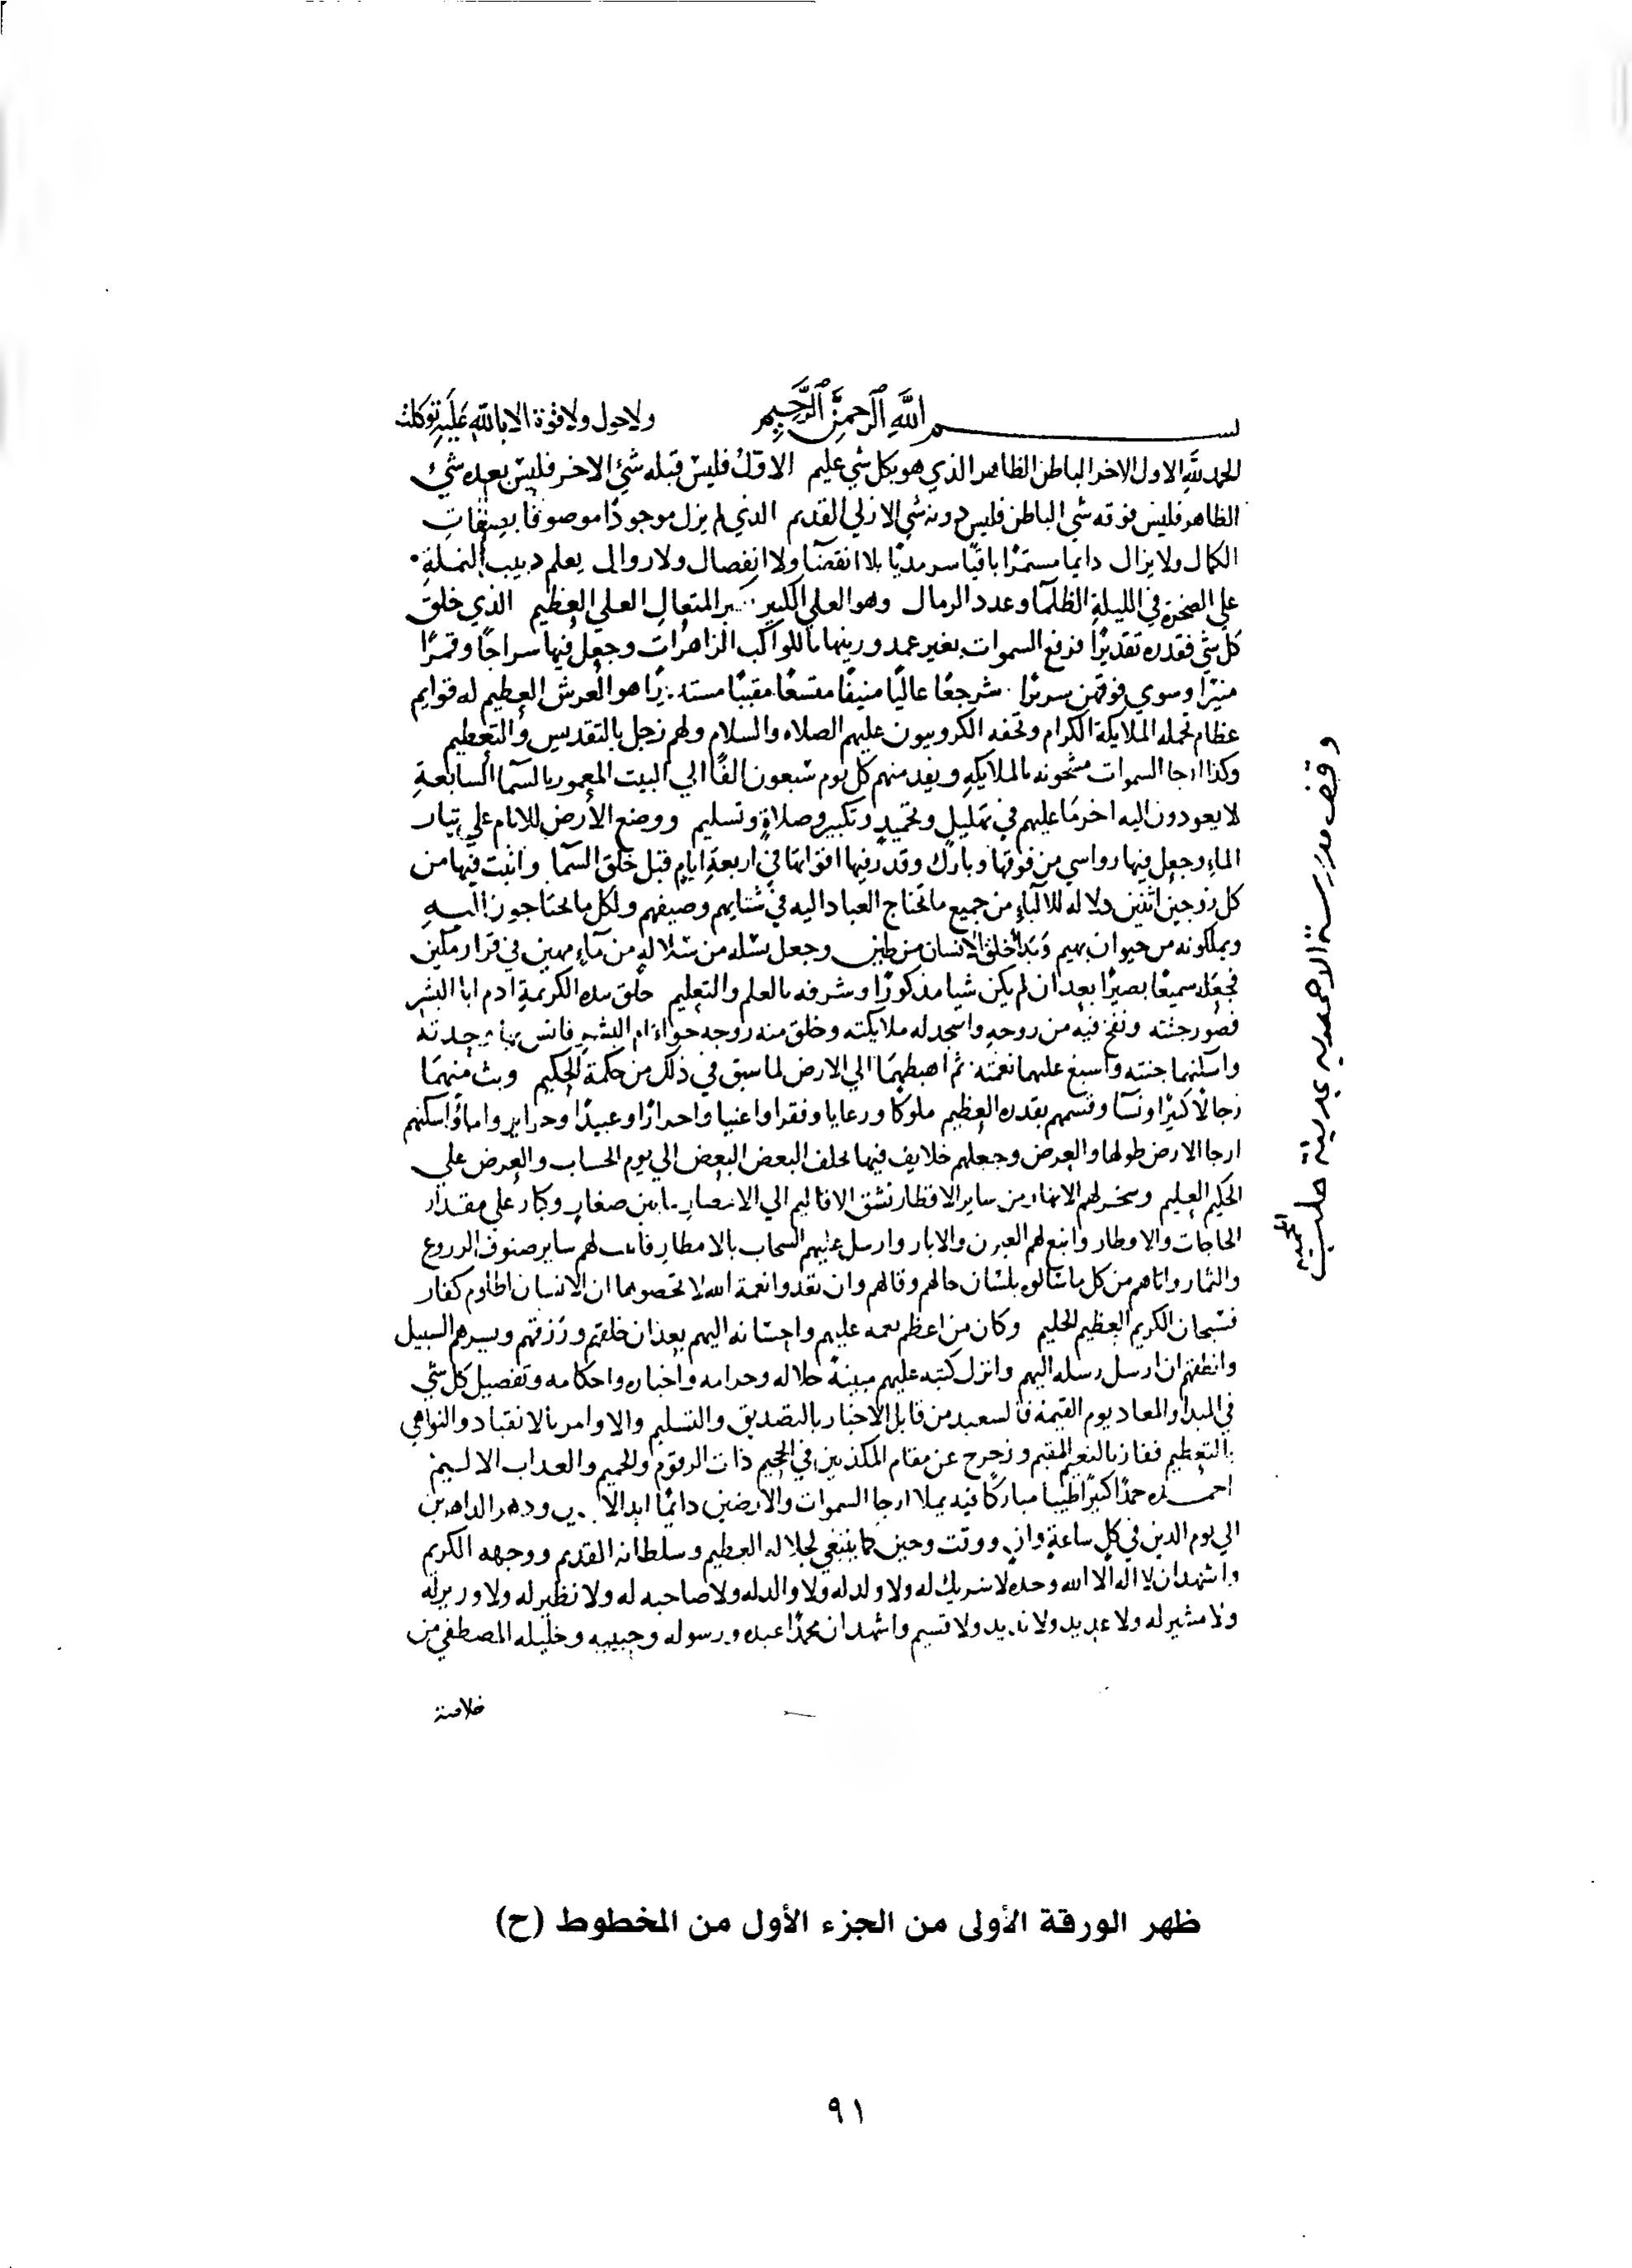 بسم الله الرحمن الرحيم ولا حول ولا قوة الا بالله عليه توكلت
الحمد لله الاول الاخر الباطن الظاهر الذي هو بكل شي عليم الاول فليس قبله شئ الاخر فليس بعده شئ
الظاهر فليس فوقه شي الباطن فليس دونه شي الازلي القديم الذي لم يزل موجودا موصوفا بصفات
الكمال ولا يزال دايما مستمرا باقيا سرمديا بلا انقضآ ولا انفصال ولا زوال يعلم دبيب النملة
علي الصخرة في الليلة الظلمآ وعدد الرمال وهو العلي الكبير المتعال العلي العظيم الذي خلق
كل شي فقدره تقديرا ورفع السموات بغير عمد وزينها بالكواكب الزاهرات وجعل فيها سراجا وقمرا
منيرا وسوي فوقهن سريرا شرجعا عاليا منيفا متسعا مقببا مستديرا هو العرش العظيم له قوايم
عظام تحمله الملايكة الكرام وتحفه الكروبيون عليهم الصلاه والسلام ولهم زجل بالتقديس والتعظيم
وكذا ارجا السموات مشحونه بالملايكه ويفد منهم كل يوم سبعون الفا الي البيت المعمور بالسمآ السابعة
لا يعودون اليه اخر ما عليهم في تهليل وتحميد وتكبير وصلاة وتسليم ووضع الأرض للانام علي تيار
الماء وجعل فيها رواسي من فوقها وبارك وقدر فيها اقواتها في اربعة ايام قبل خلق السمآ وانبت فيها من
كل زوجين اثنين دلاله للالبآء من جميع ما تحتاج العباد اليه في شتايهم وصيفهم ولكل ما يحتاجون اليه
ويملكونه من حيوان بهيم وبدأ خلق الانسان من طين وجعل نسله من سلالة من مآء مهين في قرار مكين
فجعله سميعا بصيرا بعد ان لم يكن شيا مذكورا وشرفه بالعلم والتعليم خلق بيده الكريمة ادم ابا البشر
فصور جثته ونفخ فيه من روحه واسجد له ملايكته وخلق منه زوجه حواء ام البشر فانس بها وحدته
واسكنهما جنته واسبغ عليهما نعمته ثم اهبطهما الي الارض لما سبق في ذلك من حكمة الحكيم وبث منهما
رجالا كثيرا ونسآ وقسمهم بقدره العظيم ملوكا ورعايا وفقرا واغنيا واحرارا وعبيدا وحراير واماء واسكنهم
ارجا الارض طولها والعرض وجعلهم خلايف فيها يخلف البعض البعض الي يوم الحساب والعرض علي
الحكيم العليم وسخر لهم الانهار من ساير الاقطار تشق الاقاليم الي الامصار ما بين صغار وكبار علي مقدار
الحاجات والاوطار وانبع لهم العيون والابار وارسل عليهم السحاب بالامطار فانبت لهم ساير صنوف الزروع
والثمار واتاهم من كل ما سألوه بلسان حالهم وقالهم وان تعدوا نعمة الله لا تحصوها ان الانسان لظلوم كفار
فسبحان الكريم العظيم الحليم وكان من اعظم نعمه عليهم واحسانه اليهم بعد ان خلقهم ورزقهم ويسر لهم السبيل
وانطقهم ان ارسل رسله اليهم وانزل كتبه عليهم مبينة حلاله وحرامه واخباره واحكامه وتفصيل كل شي
في المبدا والمعاد يوم القيمة فالسعيد من قابل الاخبار بالتصديق والتسليم والاوامر بالانقياد والنواهي
بالتعظيم ففاز بالنعيم المقيم وزحزح عن مقام المكذبين في الجحيم ذات الزقوم والحميم والعذاب الاليم
احمده حمدا كثيرا طيبا مباركا فيه يملا ارجا السموات والارضين دائما ابد الا بدين ودهر الداهرين
الي يوم الدين في كل ساعة وان ووقت وحين كما ينبغي لجلاله العظيم وسلطانه القديم ووجهه الكريم
واشهد ان لا اله الا الله وحده لا شريك له ولا ولد له ولا والد له ولا صاحبه له ولا نظير له ولا وزير له
ولا مشير له ولا عديد ولا نديد ولا قسيم واشهد ان محمدا عبده ورسوله وحبيبه وخليله المصطفي من
خلاصة
وقف مدرسة الاحمديه بمدينة حلب
المحميه
ظهر الورقة الأولى من الجزء الأول من المخطوط (ح)
٩١